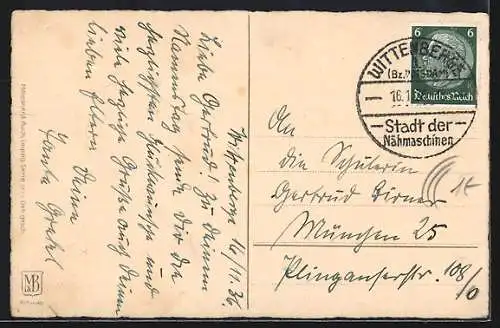 Wittenberge 16/11.36.
Liebe Gertrud! Zu Deinem
Namenstag sende Dir die
herzlichsten Glückwünsche und
viele herzliche Grüße auch Deinen
lieben Eltern
Deine
Tante Gretel
6 6
Deutsches Reich
WITTENBERGE
(Bz. Potsdam)
16.1
-Stadt der-
Nähmaschinen
An
die Schülerin
Gertrud Birner
München 25
Plinganserstr. 108/0
1€
MB